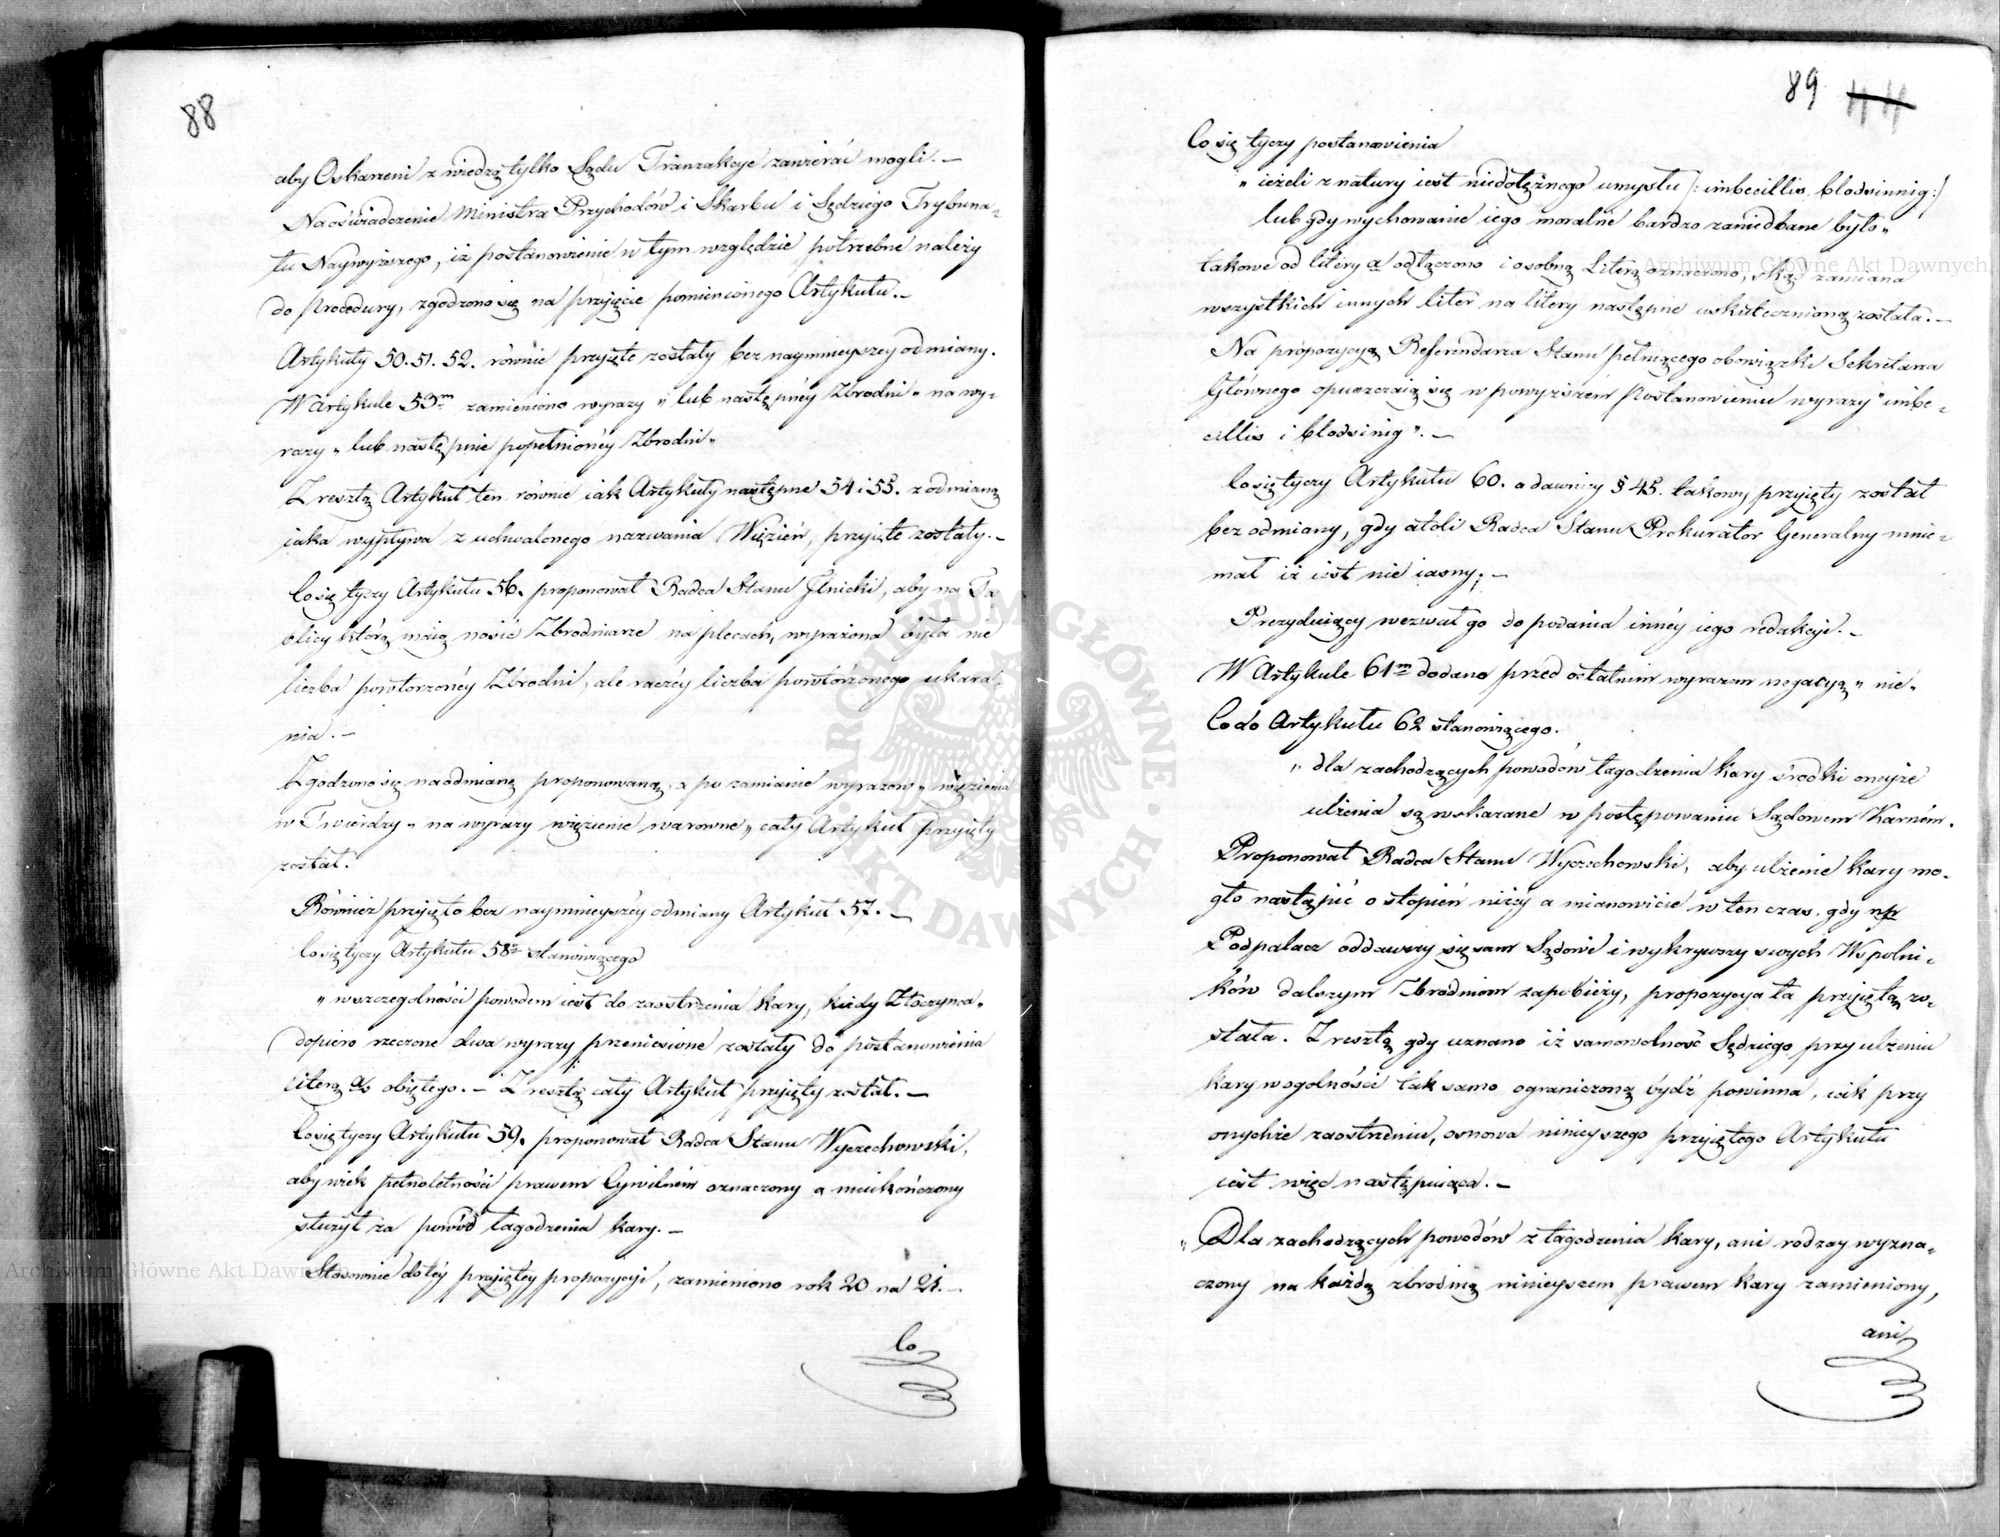 88
aby Oskarzeni z wiedzą tylko Sądu Tranzakcye zawierać mogli. —
Na oświadczenie Ministra Przychodów i Skarbu i Sędziego Trybuna-
łu Naywyższego, iż postanowienie w tym względzie potrzebne należy
do Procedury, zgodzono się na przyięcie pomienionego Artykułu. —
Artykuły 50. 51. 52. równie przyięte zostały bez naymnieyszey odmiany.
W Artykule 53m zamieniono wyrazy „ lub następnéy Zbrodni „ na wy-
razy „ lub następnie popełnionéy Zbrodni „
Zresztą Artykuł ten równie iak Artykuły następne 54 i 55. z odmianą
iaka wypływa z uchwalonego nazwania Więzień, przyięte zostały. —
Co się tyczy Artykułu 56. proponował Radca Stanu Ilnicki, aby na Ta
blicy którą maią nosić Zbrodniarze na plecach, wyrażona była nie
liczba powtorzonéy Zbrodni, ale raczéy liczba powtórzonego ukara-
nia. —
Zgodzono się na odmianę proponowaną, a po zamianie wyrazow „ więzienia
w Twierdzy „ na wyrazy więzienie warowne „ cały Artykuł przyięty
został.
Również przyięto bez naymnieyszéy odmiany Artykuł 57. —
Co się tyczy Artykułu 58o stanowiącego
„ w szczegolności powodem iest do zaostrzenia kary, kiedy Złoczynca „
dopiero rzeczone dwa wyrazy przeniesione zostały do postanowienia
literą a obiętego. — Zresztą cały Artykuł przyięty został. —
Co się tyczy Artykułu 59. proponował Radca Stanu Wyczechowski,
aby wiek pełnoletności prawem Cywilném oznaczony a nieukończony
służył za powód łagodzenia kary. —
Stosownie do téy przyiętey propozycyi, zamieniono rok 20 na 21. —
Co
89
Co się tyczy postanowienia
„ ieżeli z natury iest niedołężnego umysłu /: imbecillis, blodsinnig :/
lub gdy wychowanie iego moralne bardzo zaniedbane było „
takowe od litery a odłączono i osobną Literą oznaczono, skąd zamiana
wszystkich innych liter na litery następne uskutecznioną została. —
Na propozycyą Referendarza Stanu pełniącego obowiązki Sekretarza
Głównego opuszczaią się w powyższém Postanowieniu wyrazy „ imbe-
cillis i blodsinig ". —
Co się tyczy Artykułu 60. a dawniey § 45. takowy przyięty został
bez odmiany, gdy atoli Radca Stanu Prokurator Generalny mnie-
mał iż iest nie iasny; —
Prezyduiący wezwał go do podania innéy iego redakcyi. —
W Artykule 61m dodano przed ostatnim wyrazem negacyą „ nie „
Co do Artykułu 62 stanowiącego.
„ dla zachodzących powodów łagodzenia kary środki oneyże
ulżenia są wskazane w postępowaniu Sądowem Karném.
Proponował Radca Stanu Wyczechowski, aby ulżenie kary mo-
gło nastąpić o stopień niżéy a mianowicie w ten czas, gdy np
Podpalacz oddawszy się sam Sądowi i wykrywszy swych Wspolni-
ków dalszym Zbrodniom zapobieży, propozycya ta przyiętą zo-
stała. Zresztą gdy uznano iż samowolność Sędziego przy ulżeniu
kary w ogolności tak samo ograniczoną bydź powinna, iak przy
onychże zaostrzeniu, osnowa ninieyszego przyiętego Artykułu
iest więc następuiąca. —
„ Dla zachodzących powodów złagodzenia kary, ani rodzay wyzna-
czony na każdą zbrodnią ninieyszem prawem kary zamieniony,
ani
Archiwum Główne Akt Dawnych
Archiwum Główne Akt Dawnych
ARCHIWUM GŁÓWNE · AKT DAWNYCH ·